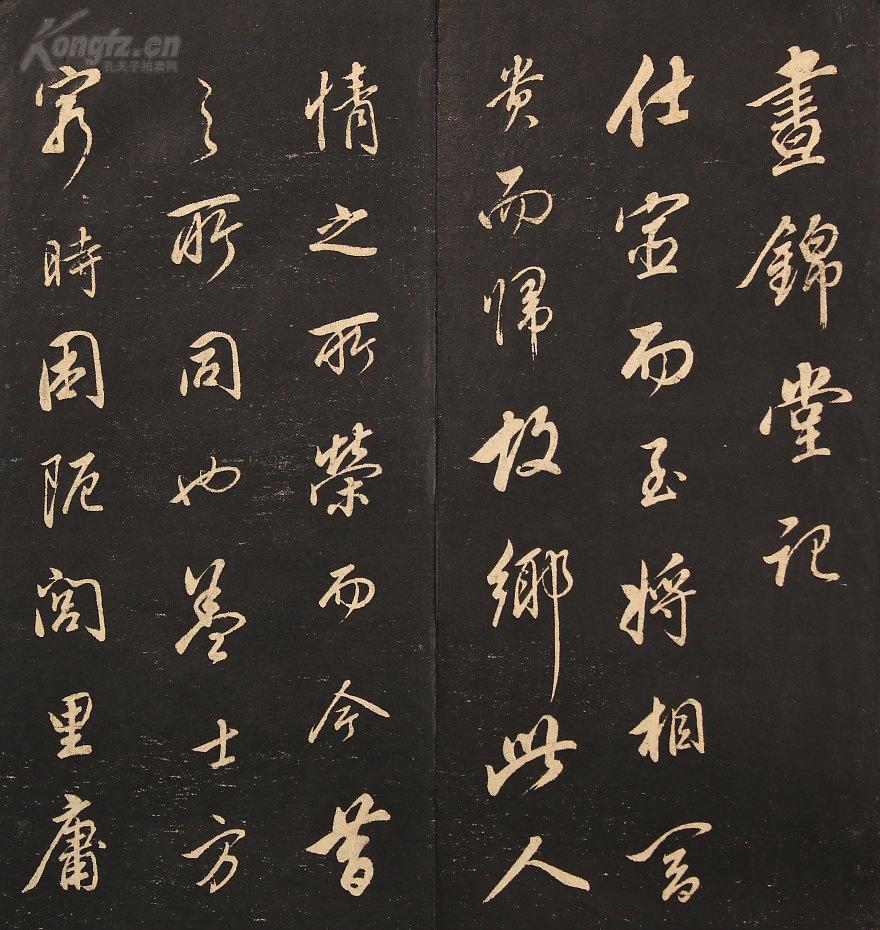 晝錦堂記
仕宦而至將相富
貴而歸故鄉此人
情之所榮而今昔
之所同也蓋士方
窮時困阨閭里庸
Kongfz.cn
孔夫子拍卖网